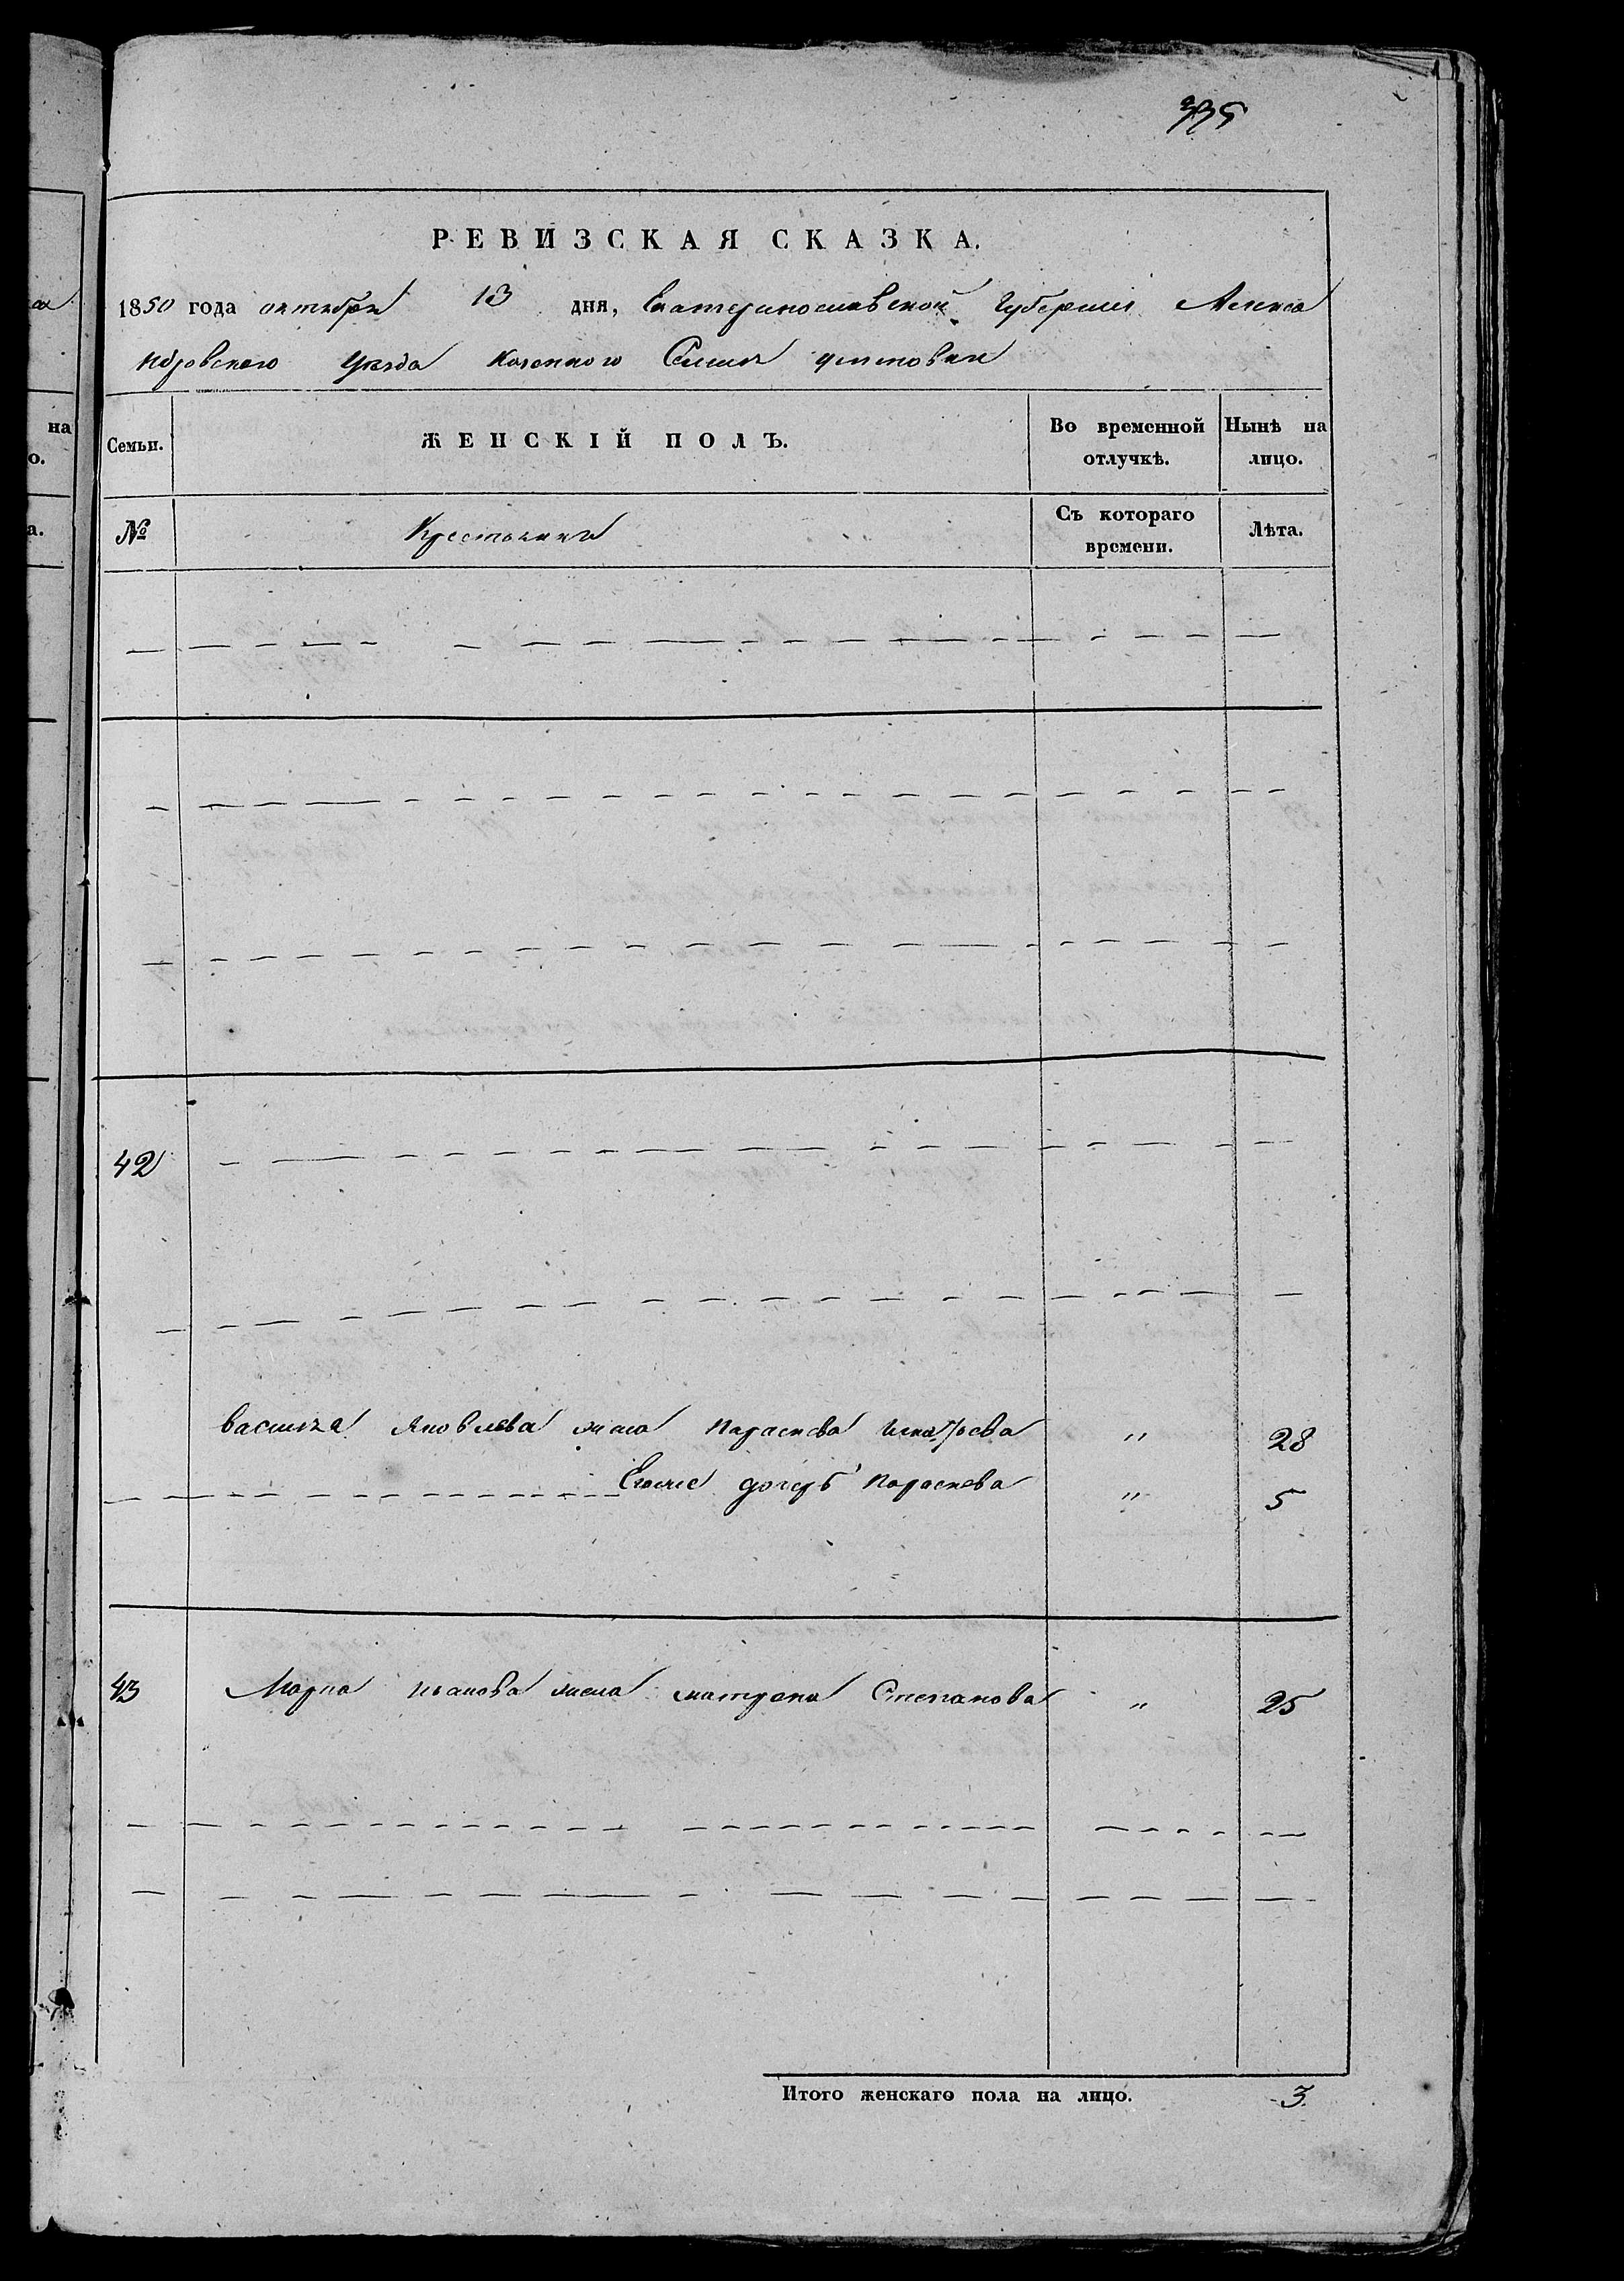 335
РЕВИЗСКАЯ СКАЗКА.
1850 года октября 13 дня, Екатеринославской Губернии Алекса
ндровского Уезда Казенного Селения
на
о.
а.
Семьи. ЖЕНСКІЙ ПОЛЪ. Во временной отлучкѣ. Нынѣ на лицо.
№ Крестьянка Съ котораго времени. Лѣта.
42
Василья Яковлева жена Параскева " 28
Егоже дочерь Параскева " 5
43 Марка Иванова жена Матрена Степанова " 25
Итого женскаго пола на лицо. 3.